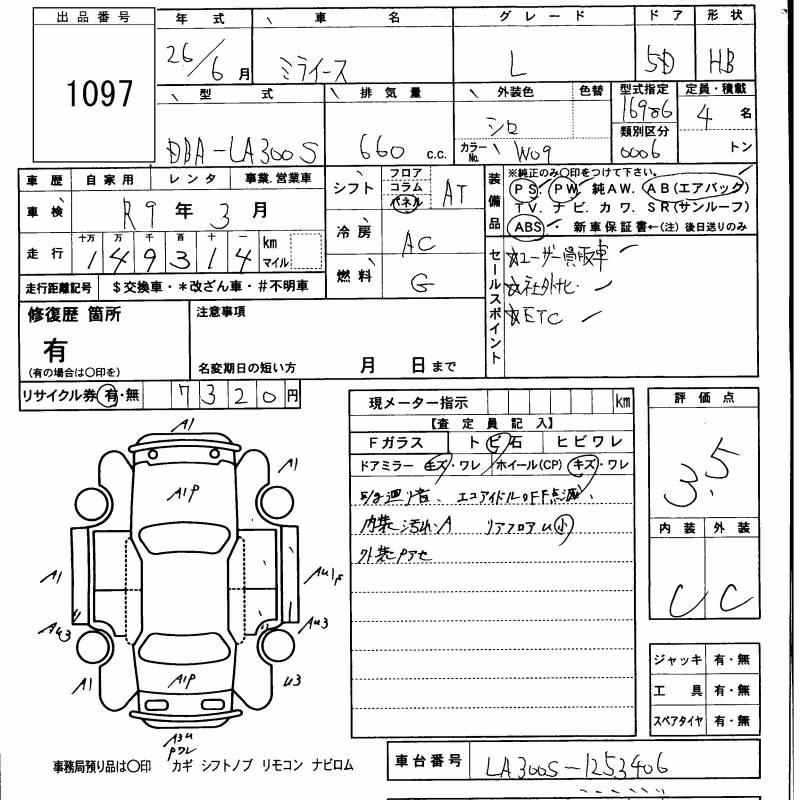 出品番号 年式 車名 グレード ドア 形状
1097 26/6月 ミライース L 5D HB
型式 排気量 外装色 色替 型式指定 定員・積載
DBA-LA300S 660 c.c. シロ カラーNo. W09 16986 4名
類別区分 0006 トン
車歴 自家用 レンタ 事業.営業車
車検 R9年3月
走行 十万 万 千 百 十 一 km マイル
149314
走行距離記号 $交換車・*改ざん車・#不明車
シフト フロア コラム パネル AT
冷房 AC
燃料 G
装備品 ※純正のみ○印をつけて下さい。
PS PW 純AW. AB(エアバック)
TV. ナビ. カワ. SR(サンルーフ)
ABS・ 新車保証書←(注)後日送りのみ
セールスポイント ☆ユーザー買取車
☆社外ナビ
☆ETC
修復歴 箇所
有
(有の場合は○印を)
注意事項
名変期日の短い方 月 日まで
リサイクル券 有・無 7320円
現メーター指示 km
【査定員記入】
Fガラス トビ石 ヒビワレ
ドアミラー キズ・ワレ ホイール(CP) キズ・ワレ
エコアイドルOFF点滅、
内装汚れ.A リアフロアU小
外装Pアセ
評価点
3.5
内装 外装
C C
ジャッキ 有・無
工具 有・無
スペアタイヤ 有・無
A1
A1
A1P
A1 AU1P
AU3 AU3
A1 A1P U3
A3U
Pワレ
事務局預り品は○印 カギ シフトノブ リモコン ナビロム
車台番号 LA300S-1253406